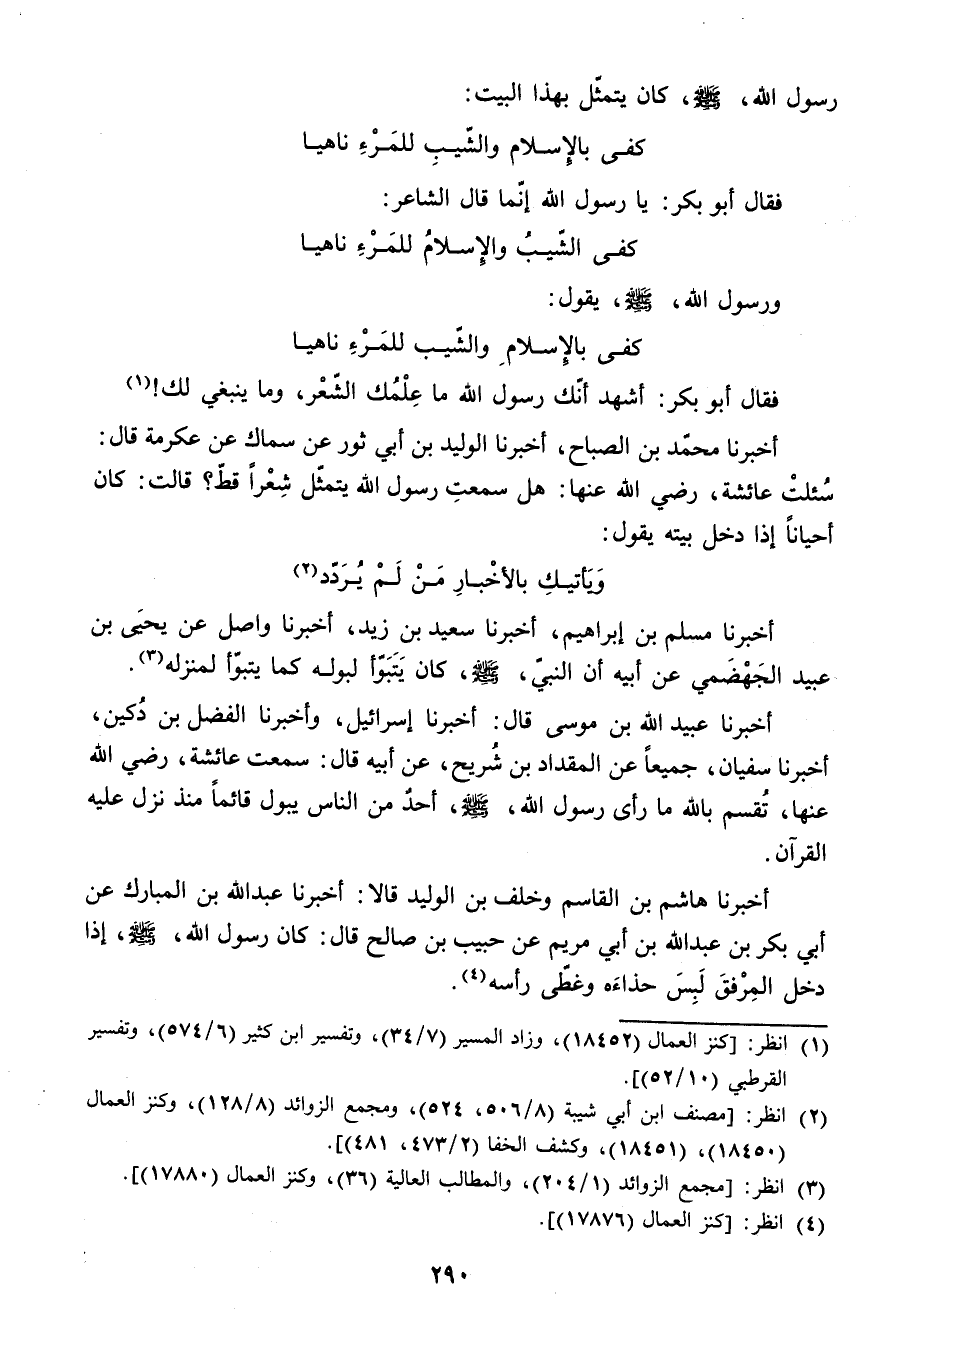 رسول الله، ﷺ، كان يتمثّل بهذا البيت:
كفـى بالإِسـلام والشّيـبِ للمَـرْءِ ناهيـا
فقال أبو بكر: يا رسول الله إنّما قال الشاعر:
كفـى الشّيـبُ والإِسـلامُ للمَـرْءِ ناهيـا
ورسول الله، ﷺ، يقول:
كفـى بالإِسـلامِ والشّيـب للمَـرْءِ ناهيـا
فقال أبو بكر: أشهد أنّك رسول الله ما عِلْمُك الشّعْر، وما ينبغي لك!(١)
أخبرنا محمّد بن الصباح، أخبرنا الوليد بن أبي ثور عن سماك عن عكرمة قال:
سُئلتْ عائشة، رضي الله عنها: هل سمعتِ رسول الله يتمثّل شِعْراً قطّ؟ قالت: كان
أحياناً إذا دخل بيته يقول:
وَيَأتيـكِ بالأخْبـارِ مَـنْ لَـمْ يُـرَدّد(٢)
أخبرنا مسلم بن إبراهيم، أخبرنا سعيد بن زيد، أخبرنا واصل عن يحيَى بن
عبيد الجَهْضَمي عن أبيه أن النبيّ، ﷺ، كان يَتَبَوّأ لبوله كما يتبوّأ لمنزله(٣).
أخبرنا عبيد الله بن موسى قال: أخبرنا إسرائيل، وأخبرنا الفضل بن دُكين،
أخبرنا سفيان، جميعاً عن المقداد بن شُريح، عن أبيه قال: سمعت عائشة، رضي الله
عنها، تُقسم بالله ما رأى رسول الله، ﷺ، أحدٌ من الناس يبول قائماً منذ نزل عليه
القرآن.
أخبرنا هاشم بن القاسم وخلف بن الوليد قالا: أخبرنا عبدالله بن المبارك عن
أبي بكر بن عبدالله بن أبي مريم عن حبيب بن صالح قال: كان رسول الله، ﷺ، إذا
دخل المِرْفقَ لَبِسَ حذاءَه وغطّى رأسه(٤).
(١) انظر: [كنز العمال (١٨٤٥٢)، وزاد المسير (٣٤/٧)، وتفسير ابن كثير (٥٧٤/٦)، وتفسير
القرطبي (٥٢/١٠)].
(٢) انظر: [مصنف ابن أبي شيبة (٥٠٦/٨، ٥٢٤)، ومجمع الزوائد (١٢٨/٨)، وكنز العمال
(١٨٤٥٠)، (١٨٤٥١)، وكشف الخفا (٤٧٣/٢، ٤٨١)].
(٣) انظر: [مجمع الزوائد (٢٠٤/١)، والمطالب العالية (٣٦)، وكنز العمال (١٧٨٨٠)].
(٤) انظر: [كنز العمال (١٧٨٧٦)].
٢٩٠